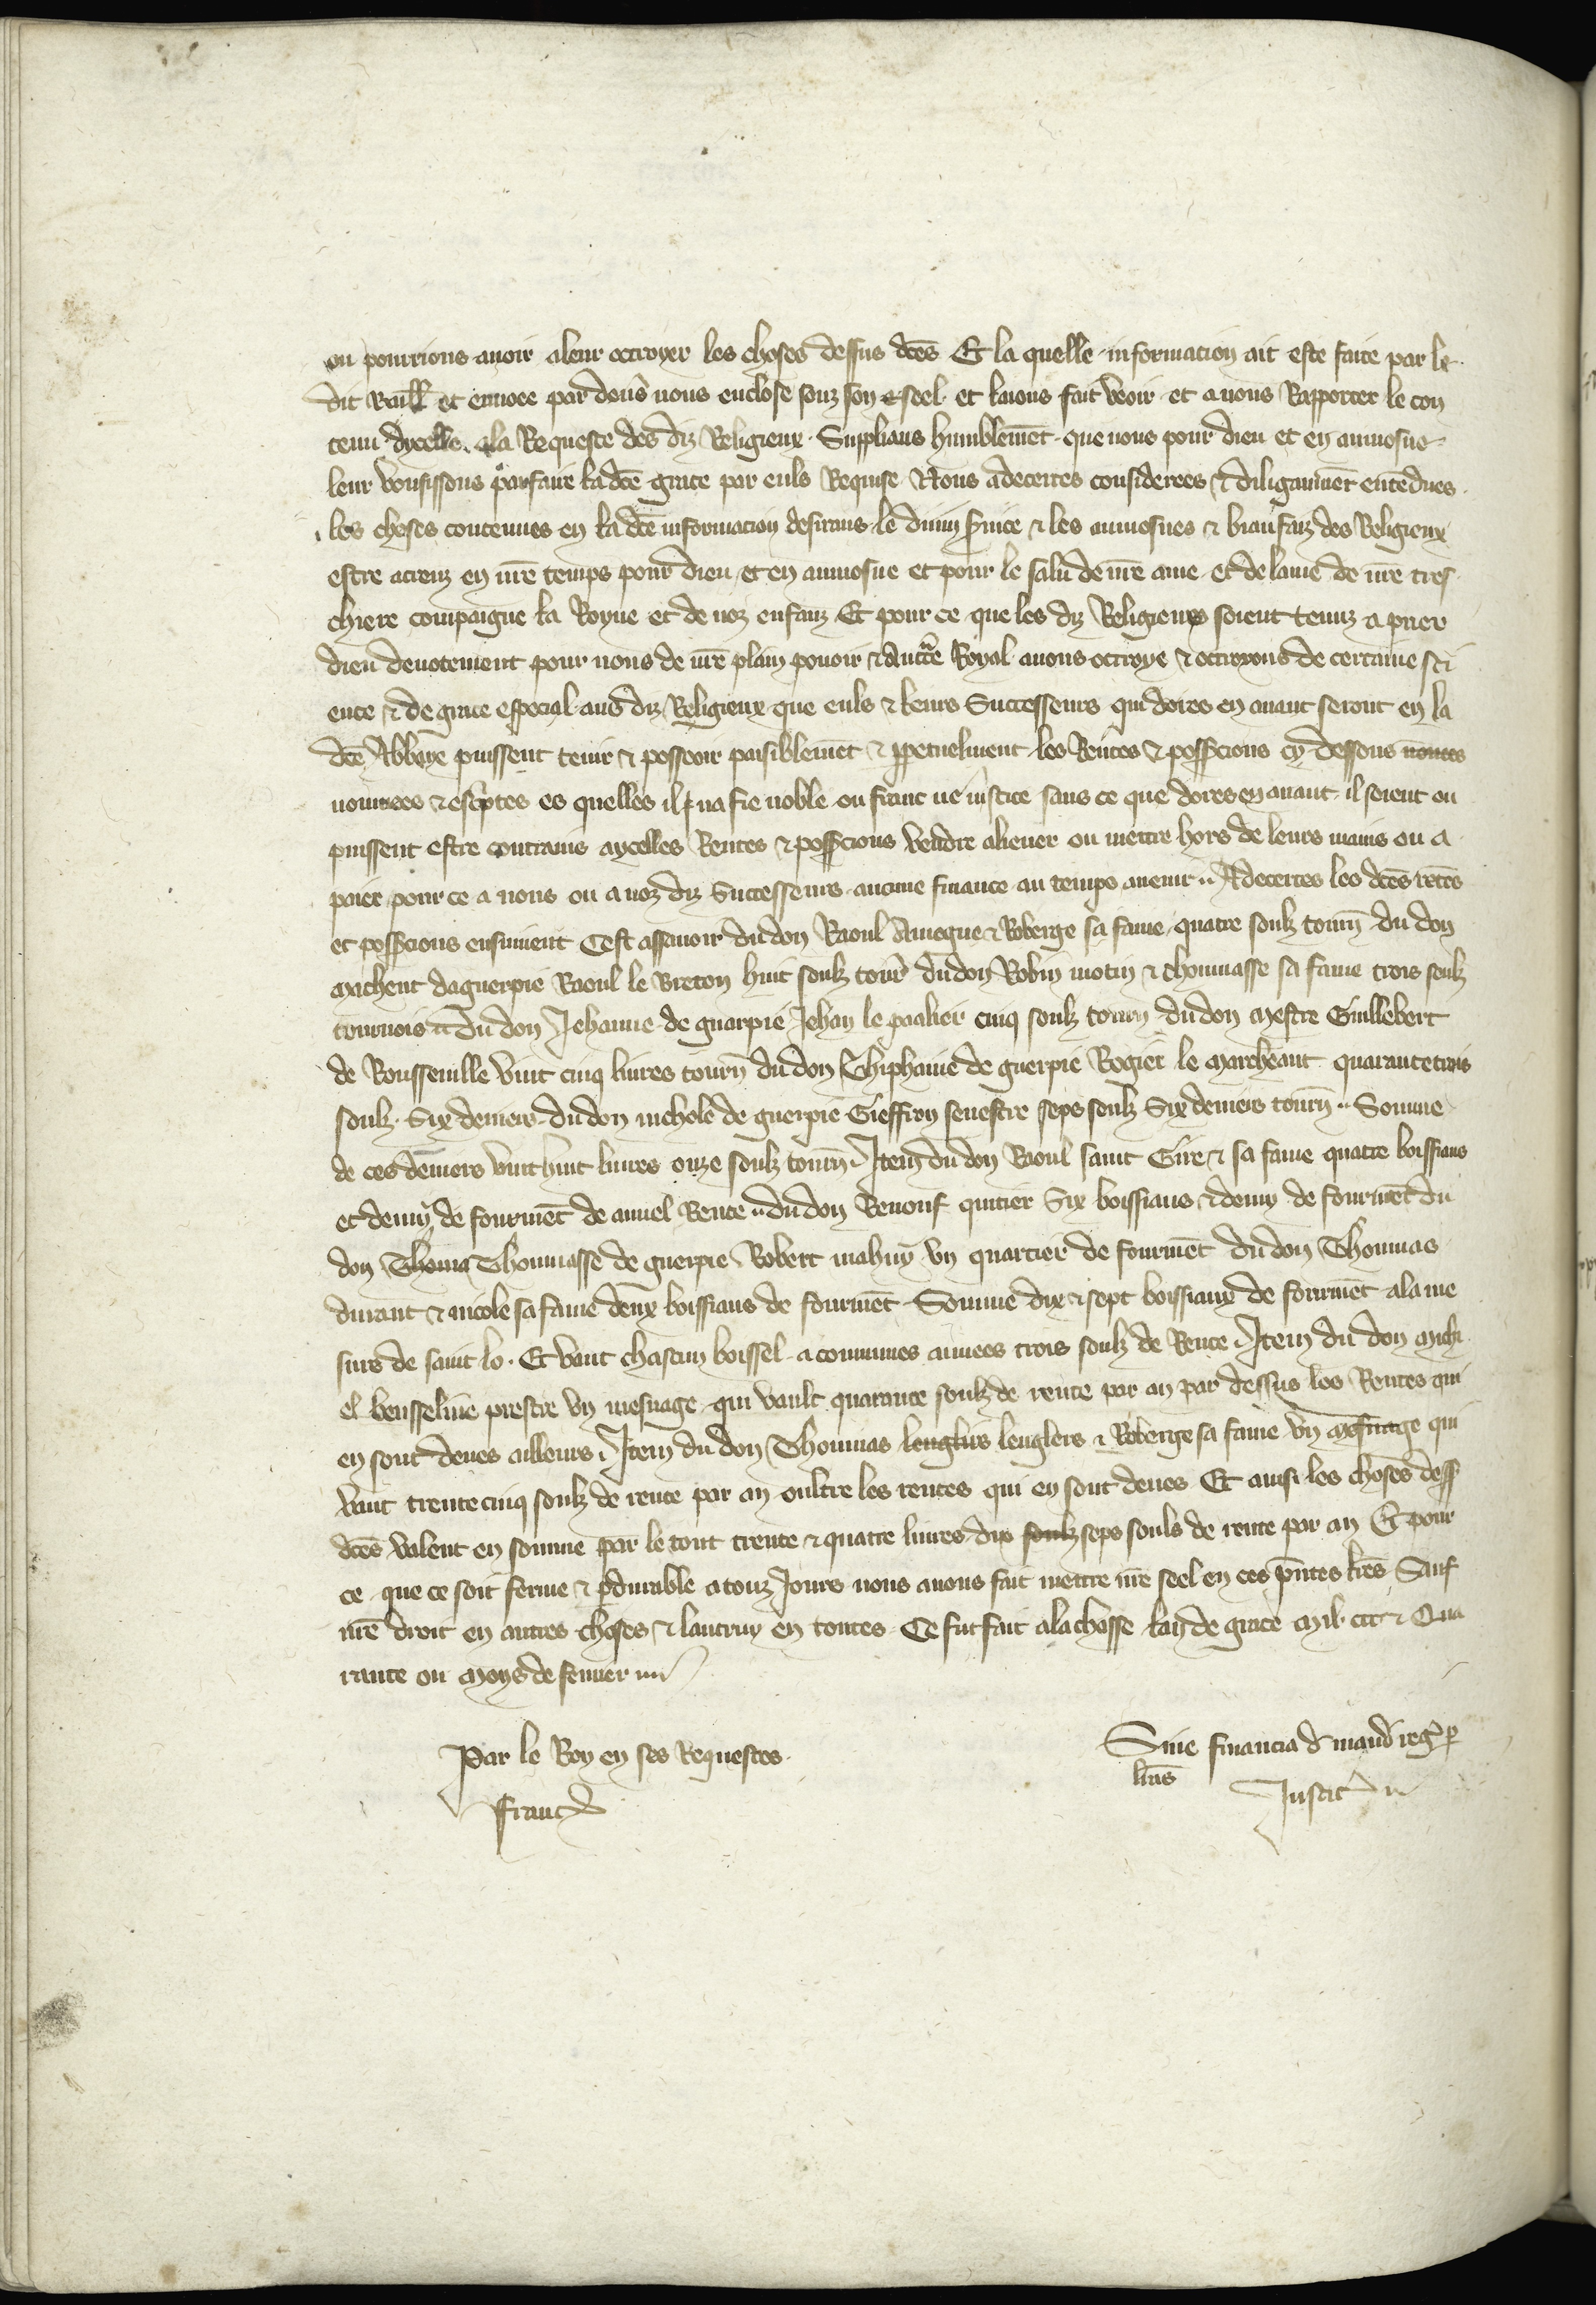 ou pourrions avoir a leur octroyer les choses dessus dces Et la quelle informacion ait este faite par le
dit baill et envoee par devs nous enclose souz son seel et laions fait veoir et a nous Rapporter le con
tenu dycelle a la Requeste des diz Religieux Supplians humblemet que nous pour dieu et en aumosne
leur vousissons parfaire la dce grace par euls Requise Nous adecertes considerees & diligaument entedues
les choses contenues en la dce informacion desirans le divin svice & les aumosnes & biaufaiz des Religieux
estre acreuz en nre temps pour dieu et en aumosne et pour le salu de nre ame et de lame de nre tres
chiere compaigne la Royne et de noz enfanz Et pour ce que les diz Religieux soient tenuz a prier
dieu devotement pour nous de nre plain povoir & auctte Royal avons octroye & octroyons de certaine sci
ence & de grace especial aus diz Religieux que euls & leurs Successeurs qui dores en avant seront en la
dce Abbaye puissent tenir & posseoir paisiblemet & ppetuelment les Rentes & possessions cy dessous nomees
nommees & escptes es quelles il na fie noble ou franc ne justice sans ce que dores en avant il soient ou
puissent estre contrains aycelles Rentes & possessions vendre aliener ou mettre hors de leurs mains ou a
paier pour ce a nous ou a noz diz Successeurs aucune finance au temps avenir Adecertes les dces retes
et possessions ensuivient Cest assavoir du don Raoul Ameque & Roberge sa fame quatre soulz tourn du don
Michent daguerpie Raoul le Breton huit soulz tour du don Robin motin & thommasse sa fame trois soulz
tournois du don Jehanne de guarpie Jehan le paalier cinq soulz tourn du don Mestre Guillebert
de Rousseville vint cinq livres tourn du don Thiphanie de guerpie Rogier le Marcheant quarante trois
soulz Six deniers du don nichole de guerpie Gieffroy senestre seps soulz Six deniers tourn Somme
de ces deniers vint huit livres onze soulz tourn Item du don Raoul saint Gire & sa fame quatre boissiaus
et demy de fourmet de annel Rente du don Renouf quitier Six boissiaus & demy de fourmet du
don Thoma Thommasse de guerpie Robert mahuy un quartier de fourmet du don Thommas
durant & nicole sa fame deux boissiaus de fourmet Somme dix & sept boissiaux de fourmet a la me
sure de saint lo Et vaut chascun boissel a communes annees trois soulz de Rente Item du don Mich
el beusseline prestre un mesnage qui vault quarante soulz de rente par an par dessus les Rentes qui
en sont deues ailleurs Item du don Thommas lenglers lenglers & Roberge sa fame un Mesnage qui
vaut trente cinq soulz de rente par an oultre les rentes qui en sont deues Et ainsi les choses dess
dces valent en somme par le tout trente & quatre livres dix soulz seps souls de rente par an Et pour
ce que ce soit ferme & pdurable a touz Jours nous avons fait mettre nre seel en ces pntes lres Sauf
nre droit en autres choses & lautruy en toutes Ce fut fait a la chasse lan de grace Mil ccc & Qua
rante ou Moys de fevrier
Par le Roy en ses Requestes
Sine financia de mand reg p
lras
Justic
Franc